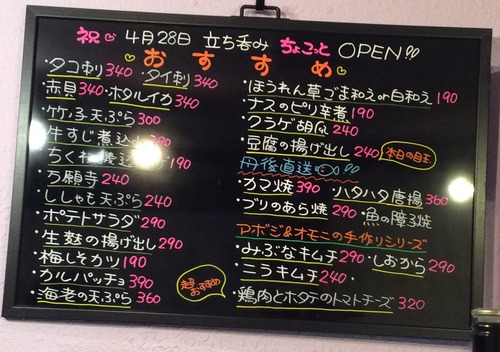 祝 4月28日 立ち呑み ちょこっと OPEN!!
おすすめ
・タコ刺 340 ・タイ刺 340
・赤貝 340 ・ホタルイカ 340
・竹ふ天ぷら 300
・牛すじ煮込 290
・ちくわ 190
・万願寺 240
・ししゃも天ぷら 240
・ポテトサラダ 290
・生麩の揚げ出し 290
・梅しそカツ 190
・カルパッチョ 390
・海老の天ぷら 360
おすすめ
・ほうれん草ごま和え or 白和え 190
・ナスのピリ辛煮 190
・クラゲ胡瓜 240
・豆腐の揚げ出し 240 本日の目玉
丹後直送
・カマ焼 390 ・ハタハタ唐揚 360
・ブリのあら焼 290 ・魚の 焼
アボジ&オモニの手作りシリーズ
・みぶなキムチ 290 ・しおから 290
・ニラキムチ 240
・鶏肉とホタテのトマトチーズ 320